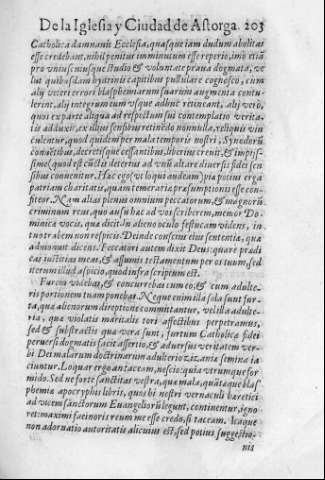 De la Iglesia y Ciudad de Astorga. 203
Catholica damnauit Ecclesia, quas que iam dudum abolitas
esse credebant, nihil penitus imminutum esse reperio, imo etiã
pro vniuscuiusque studio & voluntate praua dogmata, ve
lut quibusdam hydrinis capitibus pullulare cognosco, cum
alij veteri errori blasphemiarum suarum augmenta contu-
lerint, alij integrum eum vsque adhuc retineant, alij verò,
quos ex parte aliqua ad respectum sui contemplatio verita-
tis adduxit, ex illius sensibus retinẽdo nonnulla, reliquis vin
culentur, quod quidem per mala temporis nostri, Synodorũ
conuẽtibus, decretisque cessantibus, liberius creuit, & impijs-
simè (quod est cũctis deterius) ad vnũ altare diuersis fidei sen
sibus conuenitur. Hæc ego (vt loqui audeam) pia potius erga
patriam charitate, quam temeraria præsumptionis esse con-
fiteor. Nam alias plenus omnium peccatorum, & magnorũ
criminum reus, quo ausu hæc ad vos scriberem, memor Do-
minicæ vocis, quæ dicit. In alieno oculo festucam videns, in
tuo trabem non respicis. Deinde confcius eius sententiæ, quæ
admonuit dicens. Peccatori autem dixit Deus: quare prædi
cas iustitias meas, & assumis testamentum per os tuum, sed
iterum illud aspicio, quod infra scriptum est.
Furem videbas, & concurrebas cum eo, & cum adulte-
ris portionem tuam ponebas. Neque enim illa sola sunt fur-
ta, quæ alienorum direptione committantur, vel illa adulte-
ria, quæ violatis maritalis tori affectibus perpetramus,
sed & substractis quæ vera sunt, furtum Catholicæ fidei
peruersi dogmatis facit assertio, & aduersus veritatem ver-
bi Dei malarum doctrinarum adulterio zizania semina ia
ciuntur. Loquar ergo an taceam, nescio: quia vtrumque for
mido. Sed ne forte sanctitas vestra, quæ mala, quãtaque blas
phemia apocryphis libris, quos hi nostri vernaculi hæretici
ad vicem sanctorum Euangeliorũ legunt, continentur, igno-
ret: maximi facinoris reum me esse credo, si taceam. Itaque
non adoruatio autoritatis alicuius est, sed potius suggestio-
nis